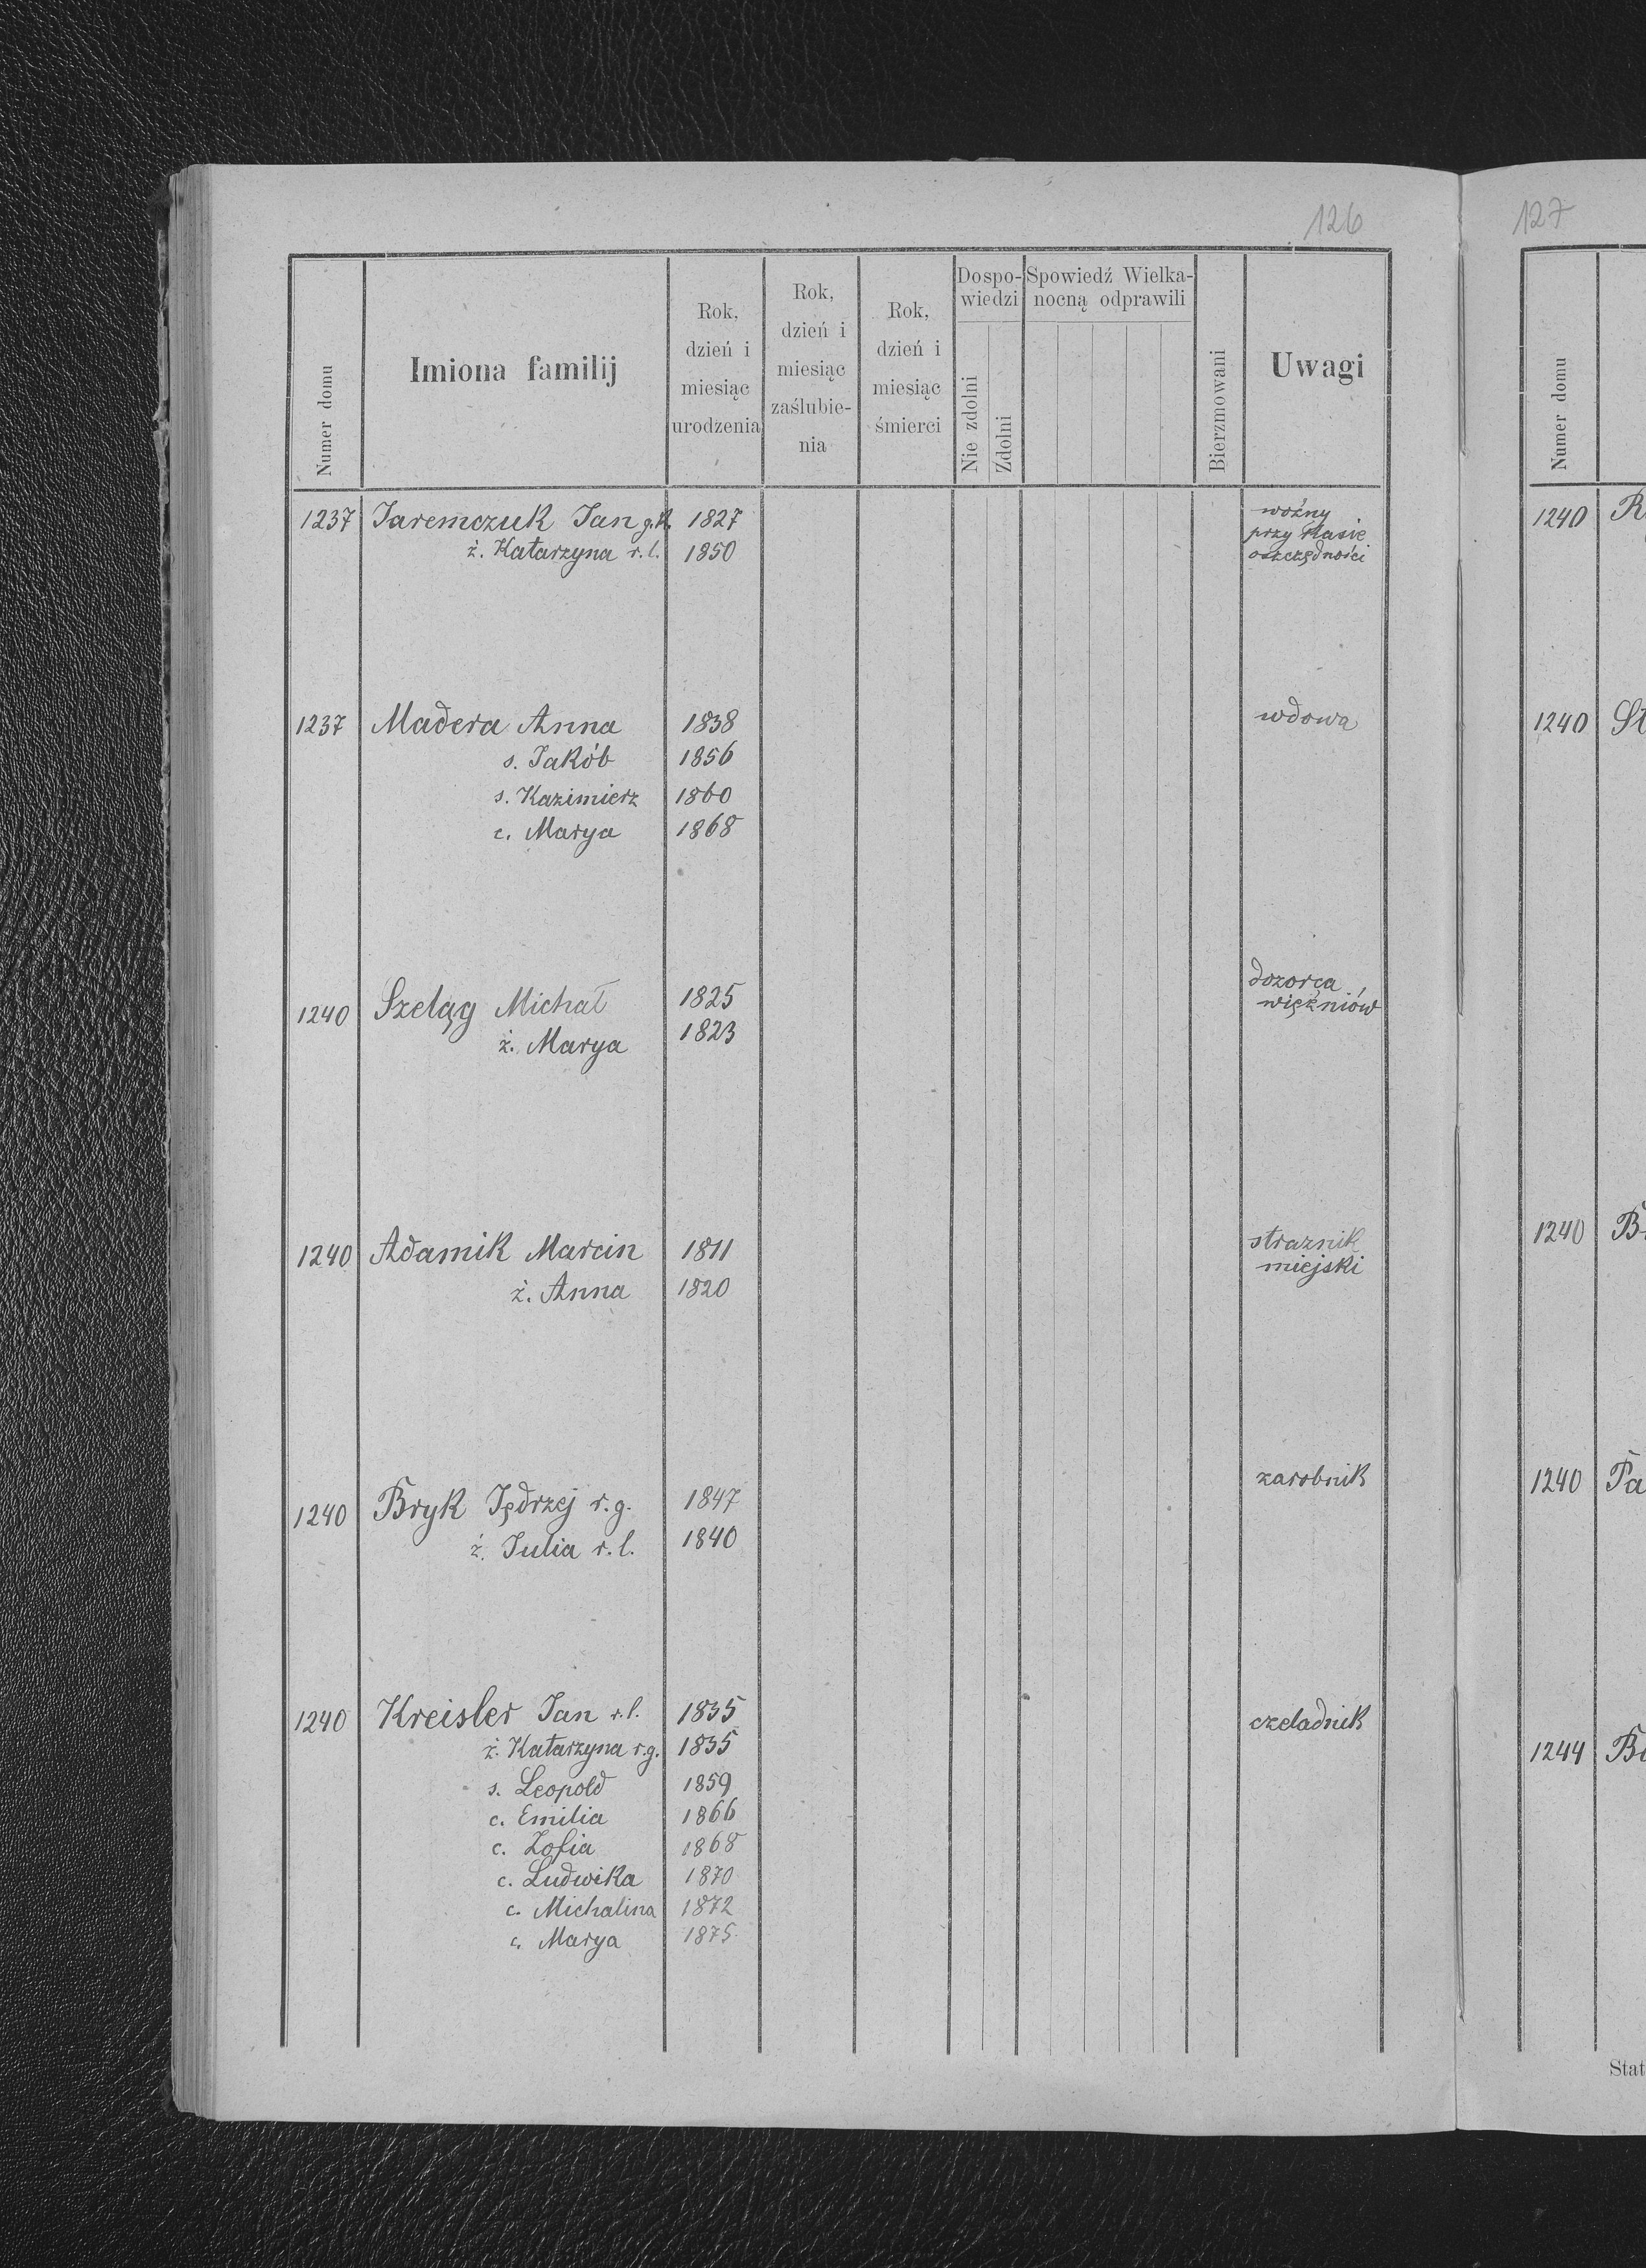 126
127
Numer domu
Imiona familij
Rok, dzień i miesiąc urodzenia
Rok, dzień i miesiąc zaślubie-nia
Rok, dzień i miesiąc śmierci
Dospo-wiedzi
Nie zdolni
Zdolni
Spowiedź Wielka-nocną odprawili
Bierzmowani
Uwagi
1237 Jaremczuk Jan g.k. 1827 woźny
przy Kasie
ż. Katarzyna r.l. 1850 oszczędności
1237 Madera Anna 1838 wdowa
s. Jakób 1856
s. Kazimierz 1860
c. Marya 1868
1240 Szeląg Michał 1825 dozorca
więźniów
ż. Marya 1823
1240 Adamik Marcin 1811 straznik
miejski
ż. Anna 1820
1240 Bryk Jędrzej r.g. 1847 zarobnik
ż. Julia r.l. 1840
1240 Kreisler Jan r.l. 1835 czeladnik
ż. Katarzyna r.g. 1835
s. Leopold 1859
c. Emilia 1866
c. Zofia 1868
c. Ludwika 1870
c. Michalina 1872
c. Marya 1875
Numer domu
1240 R
1240 St
1240 B
1240 Pa
1244 B
Stat